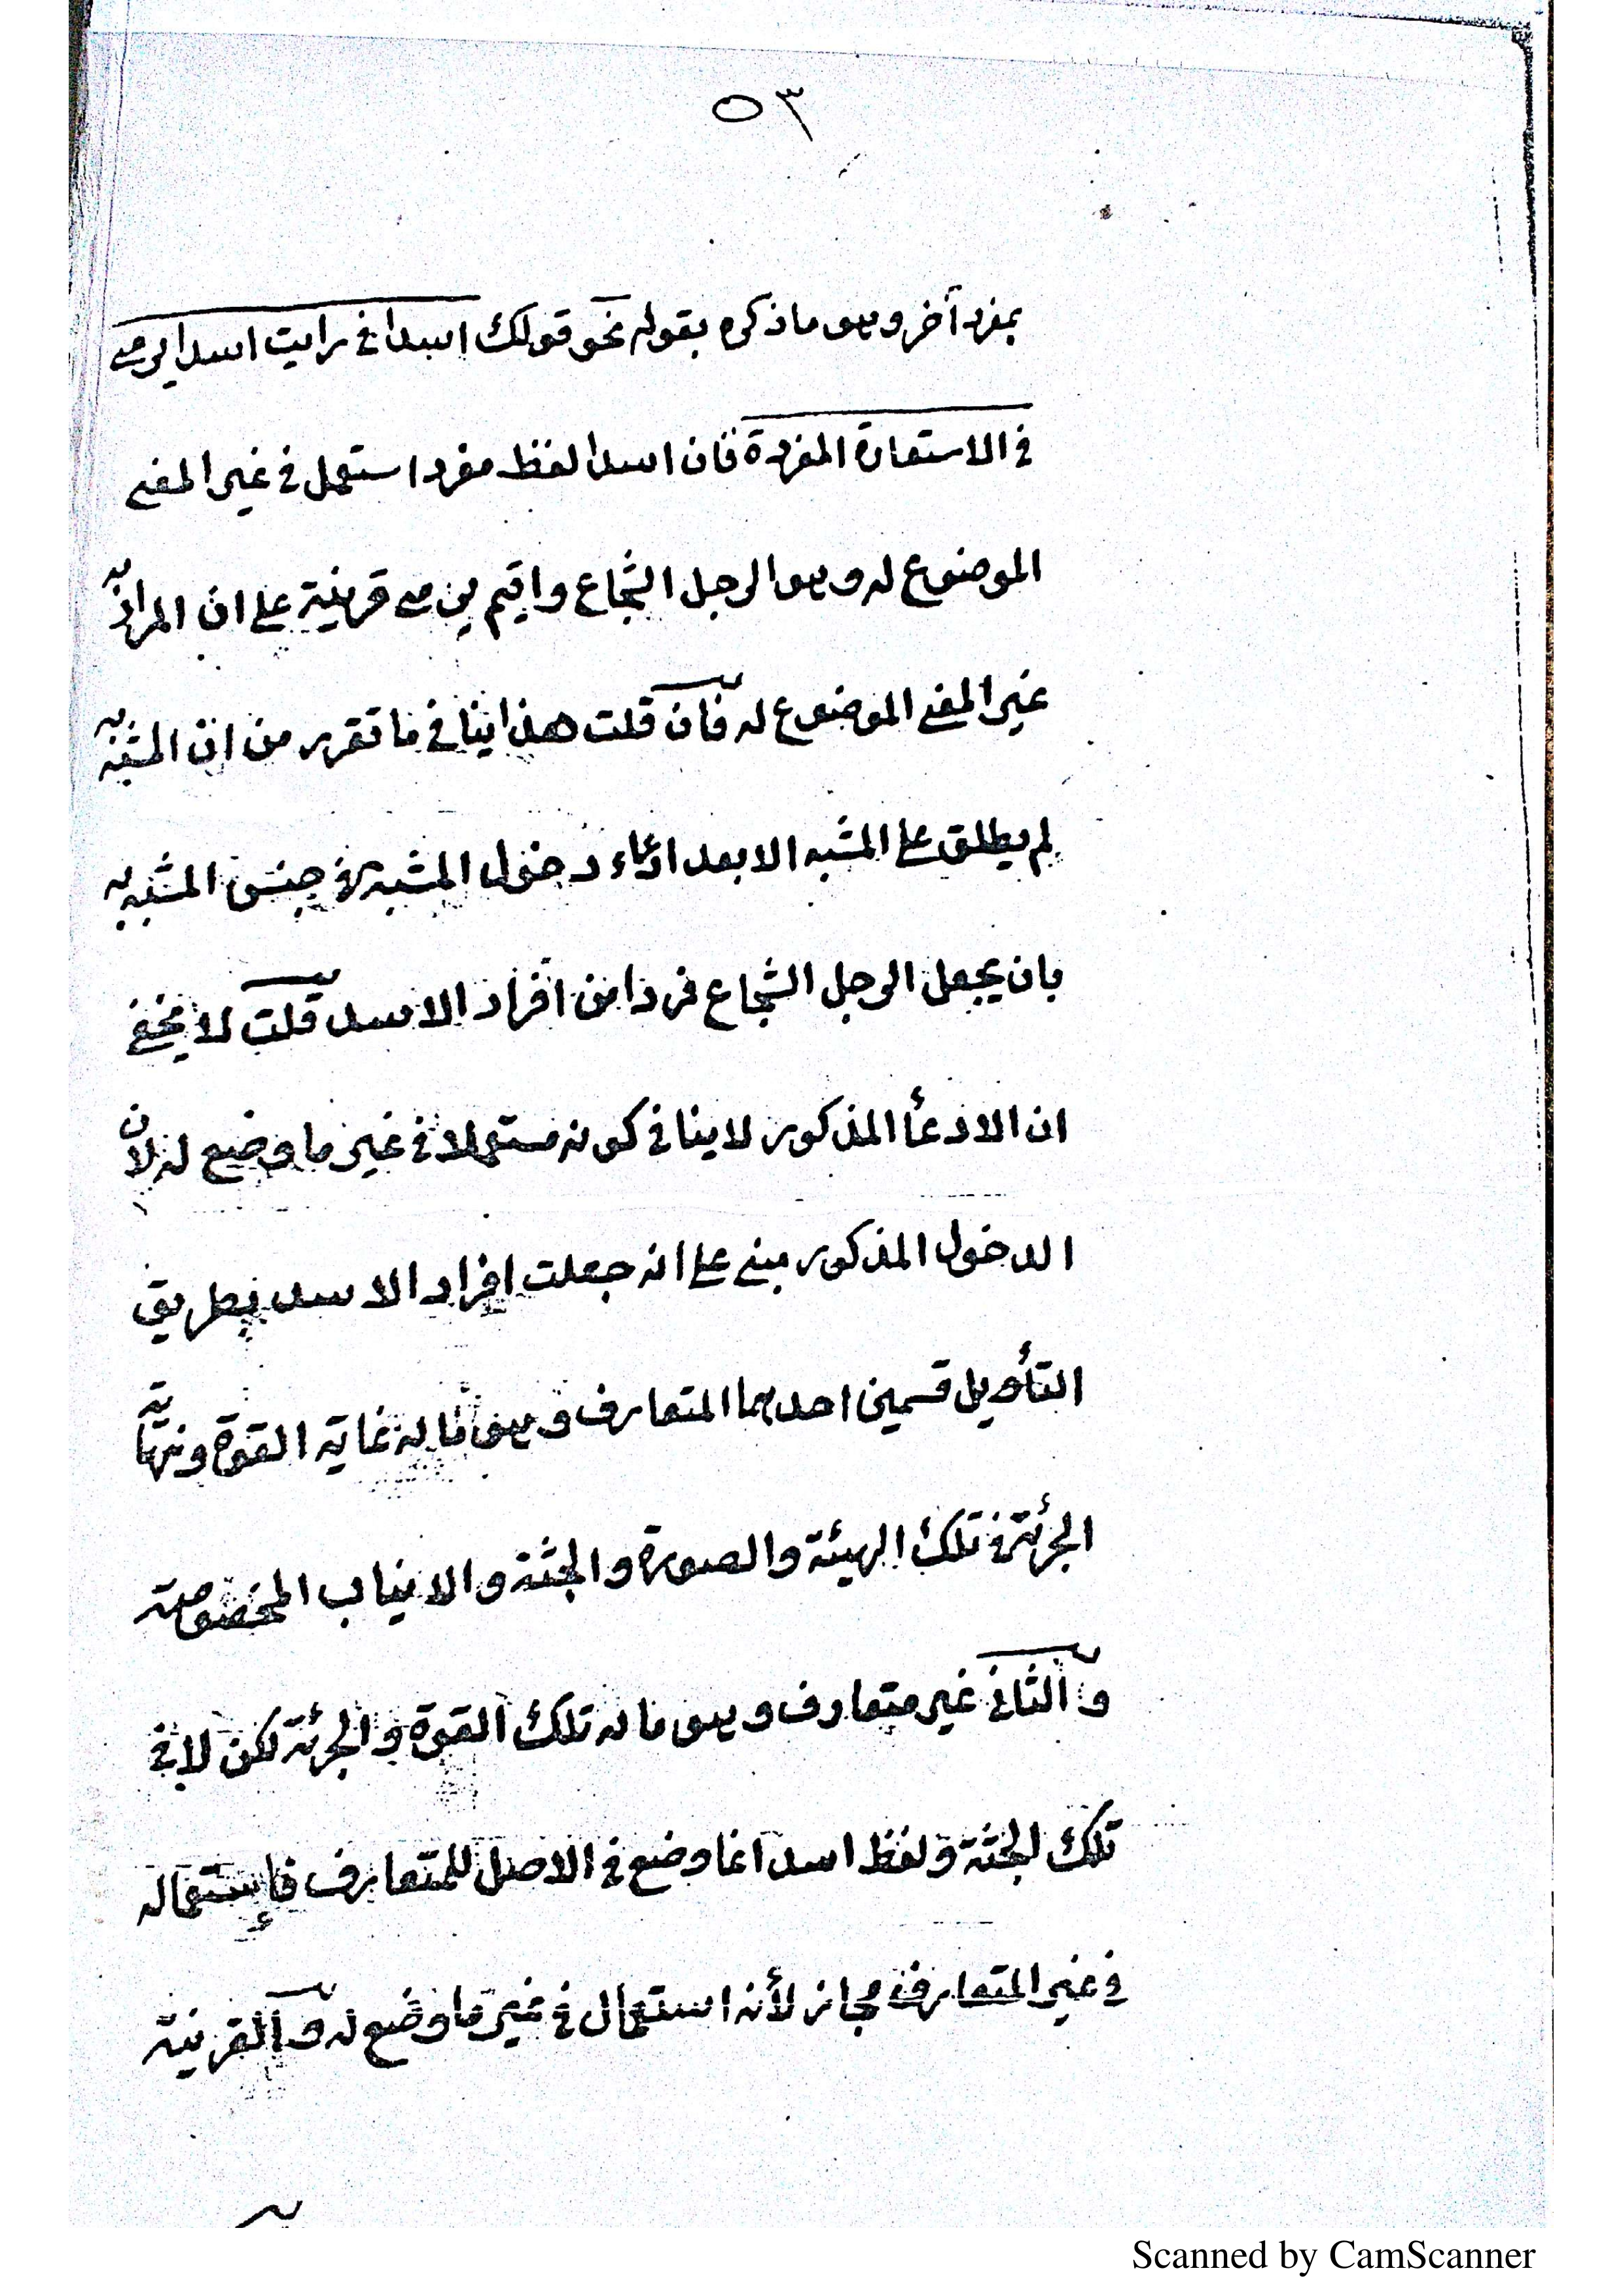 ٥٣
بمفرد آخر وهو ما ذكره بقوله نحو قولك اسدا في رايت اسدا يرمى
في الاستعارة المفردة فان اسدا لفظ مفرد استعمل في غير المعنى
الموضوع له وهو الرجل الشجاع واقيم يرمى قرينة على ان المراد به
غير المعنى الموضوع له فان قلت هذا ينافي ما تقرر من ان المشبه به
لم يطلق على المشبه الا بعد ادعاء دخول المشبه في جنس المشبه به
بان يجعل الرجل الشجاع فردا من افراد الاسد قلت لا يخفى
ان الادعأ المذكور لا ينافي كونه مستعملا في غير ما وضع له لان
الدخول المذكور مبني على انه جعلت افراد الاسد بطريق
التأويل قسمين احدهما المتعارف وهو ما له غاية القوة ونهاية
الجرئة في تلك الهيئة والصورة والجثة والانياب المخصوصة
والثاني غير متعارف وهو ما له تلك القوة والجرئة لكن لا في
تلك الجثة ولفظ اسد انما وضع في الاصل للمتعارف فإستعماله
في غير المتعارف مجاز لأنه استعمال في غير ما وضع له والقرينة
Scanned by CamScanner